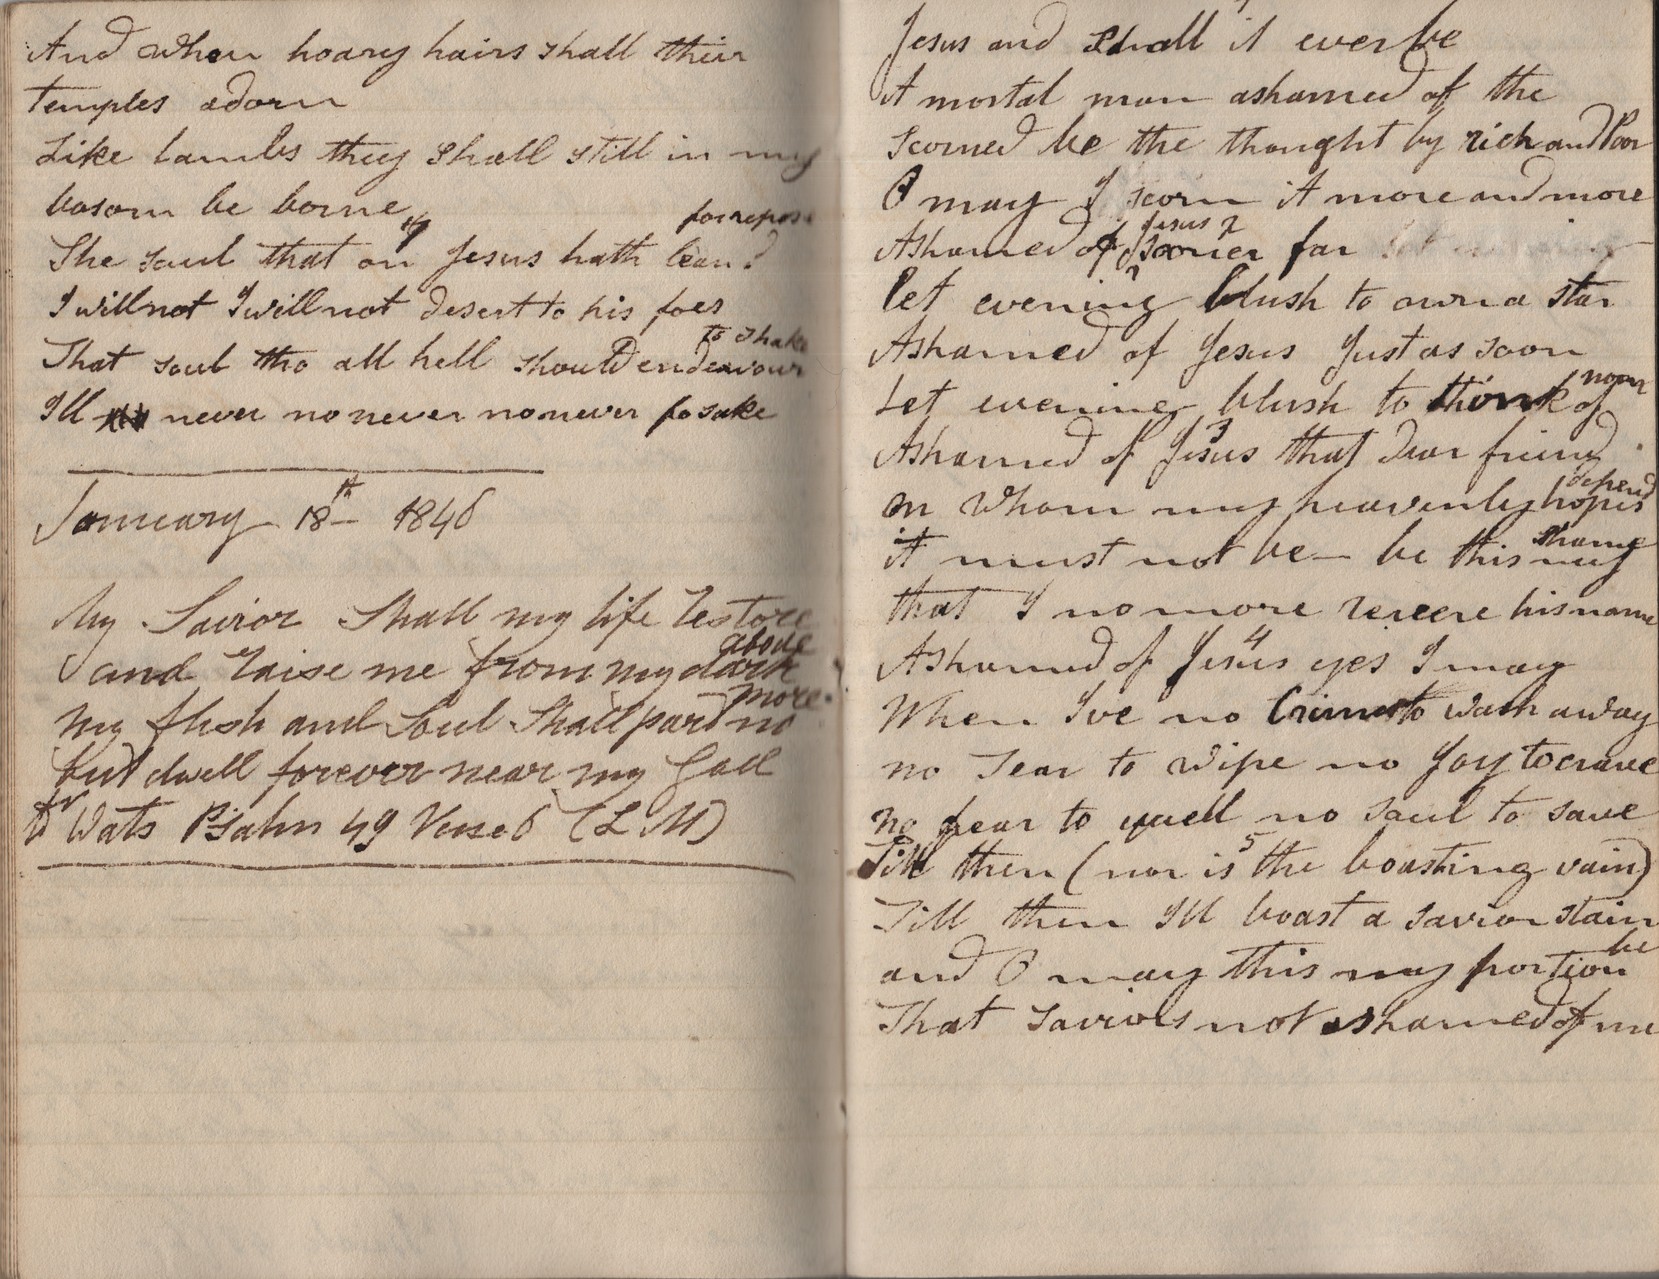 And when hoary hairs shall their
temples adorn
Like lambs they shall still in my
bosom be borne
The soul that on Jesus hath lean'd for repose
I will not I will not desert to his foes
That soul tho all hell should endeavour to shake
Ill never no never no never fosake
January 18th 1846
My Savior Shall my life restore
and raise me from my dark abode
my flesh and Soul Shall part no more
but dwell forever near my God
Dr Wats Psalm 49 Verse 6 (L M)
Jesus and shall it ever be
A mortal man ashamed of the
Scorned be the thought by rich and Poor
O may I scorn it more and more
2
Ashamed of Jesus sooner far
let evening blush to own a star
Ashamed of Jesus Just as soon
Let evening blush to think of noon
3
Ashamed of Jesus that dear friend
on whom my heavenly hopes depend
it must not be – be this my shame
that I no more revere his name
4
Ashamed of Jesus yes I may
When I've no Crimes to wash away
no Tear to wipe no Joy to crave
no fear to quell no soul to save
5
Till then (nor is the boasting vain)
Till then Ill boast a savior slain
and O may this my portion be
That saviors not ashamed of me